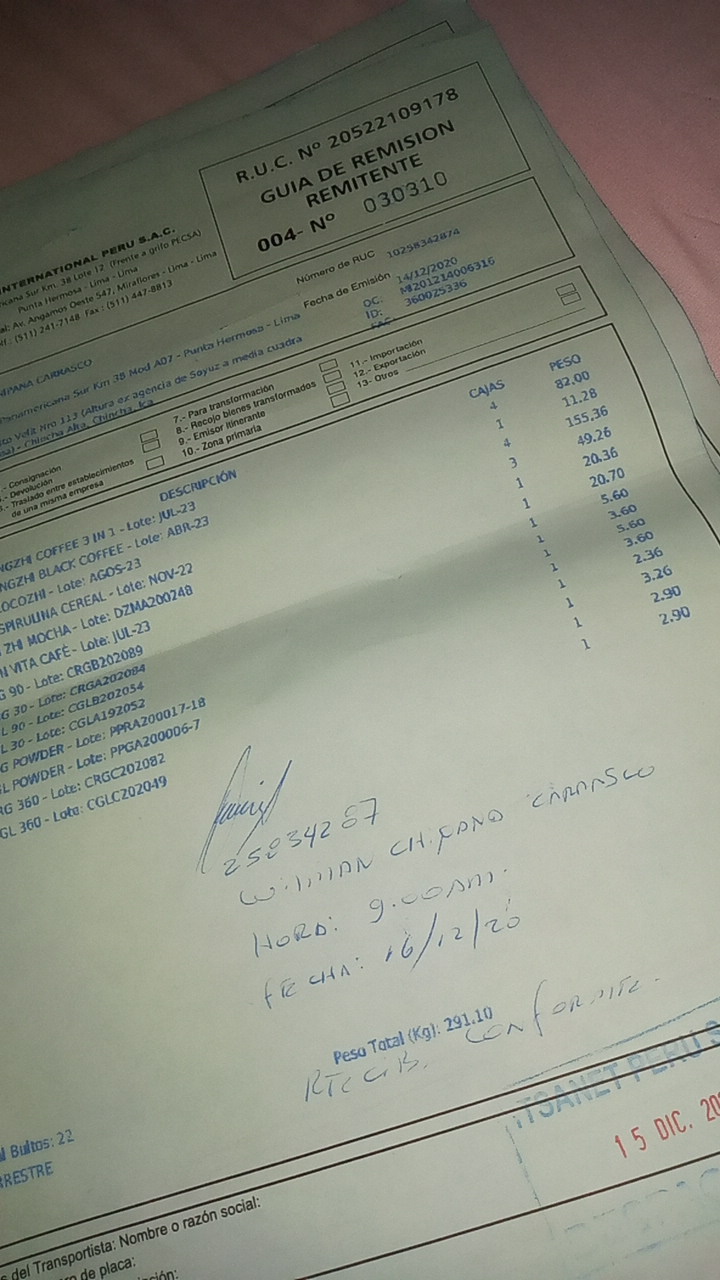 R.U.C. Nº 20522109178
GUIA DE REMISION
REMITENTE
004- Nº 030310
INTERNATIONAL PERU S.A.C.
icana Sur Km. 38 Lote 12 (Frente a grifo PECSA)
Punta Hermosa - Lima - Lima
al: Av. Angamos Oeste 547, Miraflores - Lima - Lima
lf.: (511) 241-7148 Fax : (511) 447-8813
Número de RUC 10258342874
Fecha de Emisión 14/12/2020
OC: MI201214006316
ID: 360025336
FAC:
MPANA CARRASCO
Panamericana Sur Km 38 Mod A07 - Punta Hermosa - Lima
ito Velit Nro 113 (Altura ex agencia de Soyuz a media cuadra
- Chincha Alta, Chincha, Ica
.- Consignación
.- Devolución
.- Traslado entre establecimientos
de una misma empresa
7.- Para transformación
8.- Recojo bienes transformados
9.- Emisor Itinerante
10.- Zona primaria
11.- Importación
12.- Exportación
13- Otros
DESCRIPCIÓN CAJAS PESO
NGZHI COFFEE 3 IN 1 - Lote: JUL-23 4 82.00
NGZHI BLACK COFFEE - Lote: ABR-23 1 11.28
OCOZHI - Lote: AGOS-23 4 155.36
SPIRULINA CEREAL - Lote: NOV-22 3 49.26
ZHI MOCHA - Lote: DZMA200248 1 20.36
HI VITA CAFÉ - Lote: JUL-23 1 20.70
G 90 - Lote: CRGB202089 1 5.60
G 30 - Lote: CRGA202084 1 3.60
L 90 - Lote: CGLB202054 1 5.60
L 30 - Lote: CGLA192052 1 3.60
G POWDER - Lote: PPRA200017-18 1 2.36
GL POWDER - Lote: PPGA200006-7 1 3.26
RG 360 - Lote: CRGC202082 1 2.90
GL 360 - Lote: CGLC202049 1 2.90
25834287
HORA: 9.00 AM.
FECHA: 16/12/20
Peso Total (Kg): 291.10
RECIBI CONFORMITE.
al Bultos: 22
RRESTRE
ITSANET PERU S
15 DIC. 20
s del Transportista: Nombre o razón social:
ro de placa: